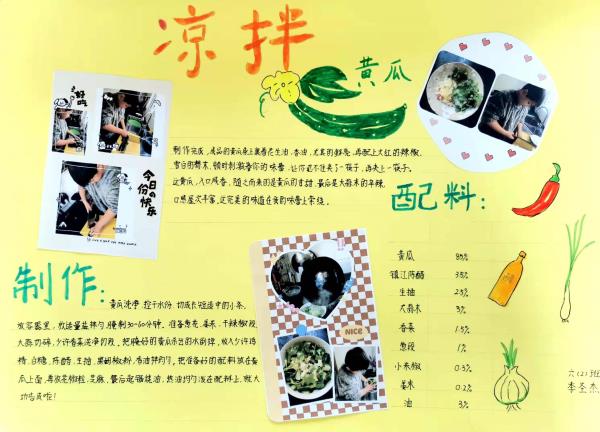 凉拌
黄瓜
好吃
今日の
份快乐
制作完成,成品的黄瓜身上裹着花生油、香油,尤其的鲜亮,再配上大红的辣椒、
雪白的蒜末,顿时刺激着你的味蕾,让你忍不住夹了一筷子,再夹上一筷子。
这黄瓜,入口咸香,随之而来的是黄瓜的甘甜,最后是大蒜末的辛辣,
口感层次丰富,这完美的味道在我的味蕾上萦绕。
配料:
黄瓜 85%
镇江陈醋 3.5%
生抽 2.5%
大蒜末 3%
香菜 1.5%
葱段 1%
小米椒 0.3%
姜末 0.2%
油 3%
制作:
黄瓜洗净,控干水份,切成长短适中的小条,
放容器里,放适量盐拌匀,腌制30-60分钟。准备葱花、姜末、干辣椒段、
大蒜切碎,少许香菜洗净切段,把腌好的黄瓜杀出的水倒掉,放入少许鸡
精、白糖、陈醋、生抽、黑胡椒粉、香油拌均匀,把准备好的配料放在黄
瓜上面,再放花椒粒、芝麻,最后起锅烧油,热油均匀泼在配料上,就大
功告成啦!
NICE
六(2)班
李圣杰